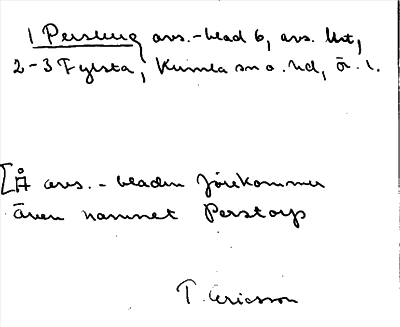 1 Persberg avs.-blad 6, avs. Ust,
2-3 Fylsta, Kumla sn o. hd, Ö. l.
[Å avs.-bladen förekommer
även namnet Perstorp
T. Ericsson